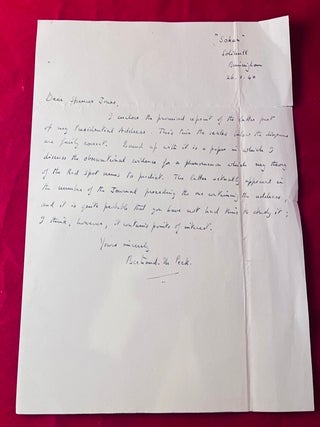 "Sohar"
Solihull
Birmingham
26. 1. 40
Dear Spencer Jones,
I enclose the promised reprint of the latter part
of my Presidential Address. This time the scales below the diagrams
are fairly correct. Bound up with it is a paper in which I
discuss the observational evidence for a phenomenon which my theory
of the Red Spot seems to predict. The latter actually appeared in
the number of the Journal preceding the one containing the address,
and it is quite probable that you have not had time to study it;
I think, however, it contains points of interest.
Yours sincerely
Bertrand. M. Peek.